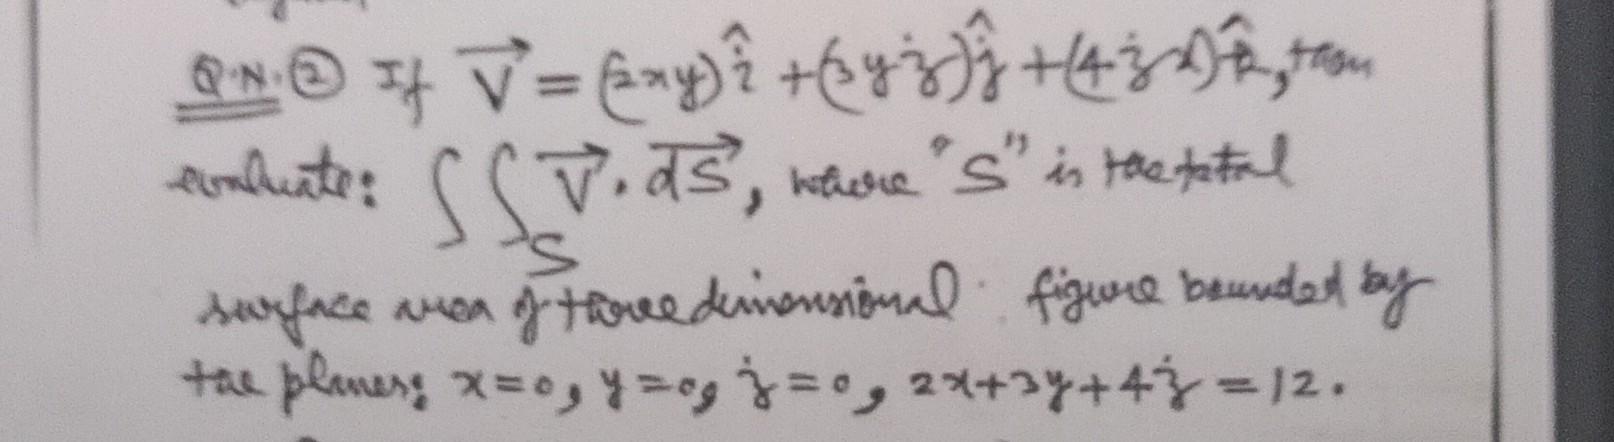 Q.N.② If V⃗ = (2xy)î + (3yz)ĵ + (4zx)k̂, then
evaluate: ∫∫_S V⃗ . dS⃗, where "S" is the total
surface area of three dimensional figure bounded by
the planes; x=0, y=0, z=0, 2x+3y+4z=12.